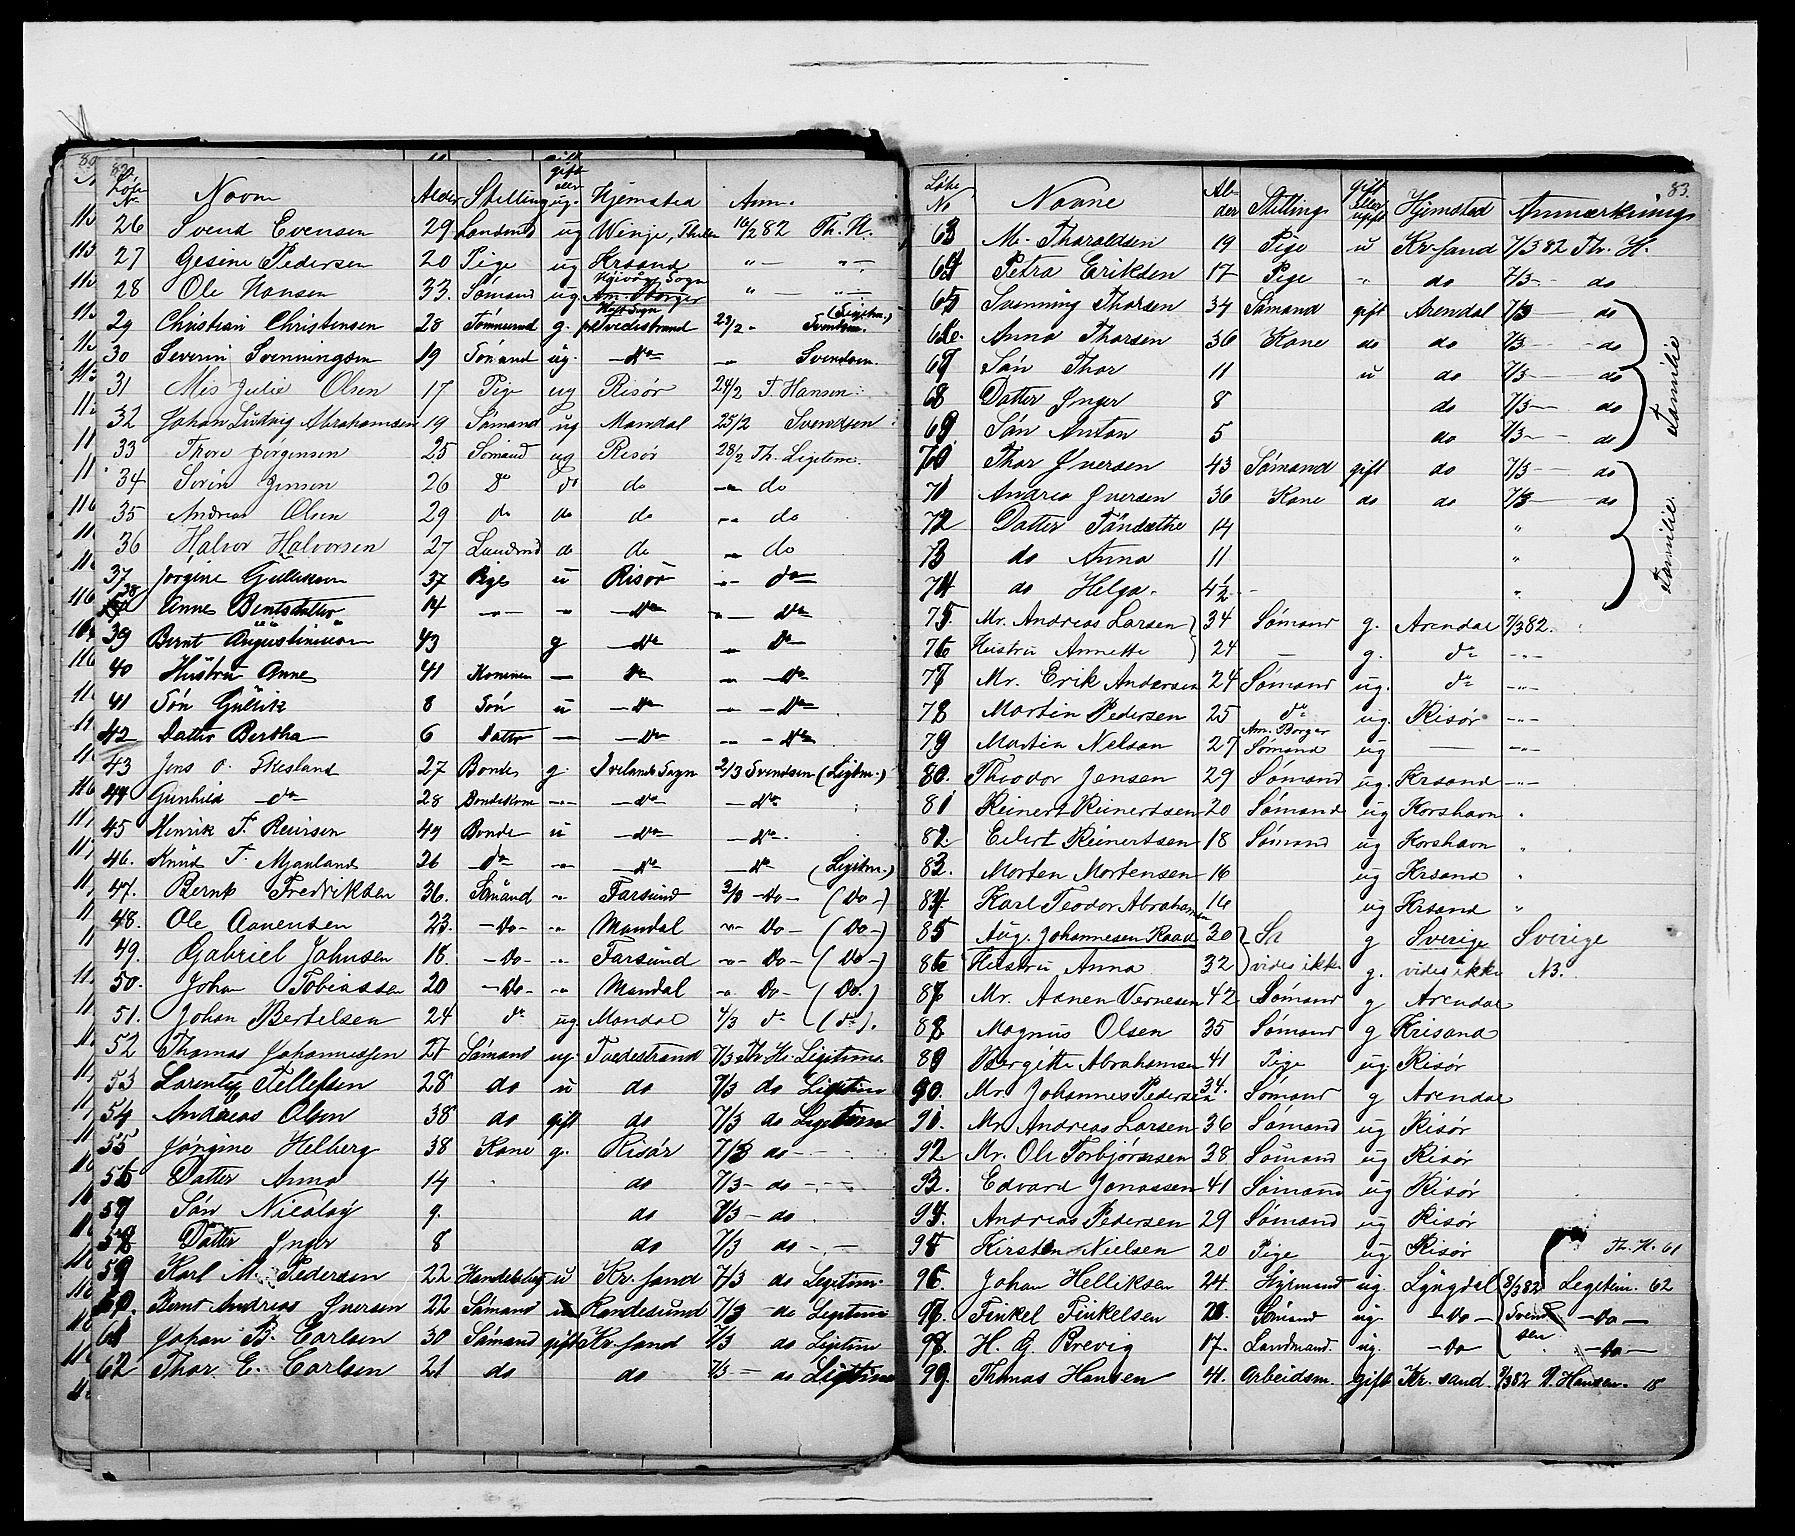 82.
Løbe Nr. Navn Alder Stilling gift eller ug. Hjemsted Anm.
26 Svend Evensen 29 Landmd ug Winje, Thelen 16/2 82 Th. H.
27 Gesine Pedersen 20 Pige ug Krsand " — " —
28 Ole Hansen 33. Sømand ug Am. Borger " — " —
29 Christian Christensen 28 Tømmermd g. Tvedestrand 23/2 " Svendsen (Legitm.)
30 Severin Svenningsen 19 Sømand ug. — do — " Svendsen
31 Mis Julie Olsen 17 Pige ug Risør 24/2 T. Hansen
32 Johan Ludvig Abrahamsen 19 Sømand ug Mandal 25/2 Svendsen
33 Thore Jørgensen 25 Sømand ug Risør 28/2 Th. Legitm.
34 Sørin Jensen 26 do do do — do
35 Andreas Olsen 29 do do do — do
36 Halvor Halvorsen 27 Landmd do do — do
37 Jørgine Gulliksen 37 Pige u Risør — do
38 Anne Bentsdatter 14 — " — " — do — " — do
39 Bernt Augustinius̈son 43 g — do — " do
40 Hustru Anne 41 Konen — — do — " — do
41 Søn Gullik 8 Søn u — do — " — do
42 Datter Bertha 6 Datter — — do — " — do
43 Jens O. Skesland 27 Bonde g. Ivelands Sogn 2/3 Svendsen (Legitm.)
44 Gunhild — do 28 Bondekone — " — — do — — do —
45 Henrik T. Reiersen 49 Bonde u — do — — do —
46. Knud T. Mjanland 26 — do — " — do — — do (Legitm.)
47. Bernt Fredriksen 36. Sømand " Farsund 3/3 — Do — (Do —)
48. Ole Aanensen 23. — Do — " Mandal " — Do — (Do —)
49. Gabriel Johnsen 18. — Do — " Farsund " — Do — (Do —)
50. Johan Tobiassen 20 — Do — " Mandal " Do — (Do.)
51. Johan Bertelsen 24 do ug. Mandal 4/3 do (do).
52 Thomas Johannessen 27 Sømand ug. Tvedestrand 7/3 Th. H. Legitima.
53 Lorents Tellefsen 28 do u do 7/3 do Legitim
54 Andreas Olsen 38 do gift do 7/3 do Legitim
55 Jørgine Helberg 38 Kone g. Risør 7/3 do —
56 Datter Anna 14 do 7/3 — do —
57 Søn Nicolay 9. do 7/3 — do
58 Datter Inger 8 do 7/3 do —
59 Karl M. Pedersen 22 u Kr. sand 7/3 do Legitim.
60. Bernt Andreas Iversen 22 Sømand u Randesund 7/3 — do Legitim
61 Johan B. Carlsen 30 Sømand gift Kr. sand 7/3 do Legitim
62 Thor E. Carlsen 21 do do 7/3 — do Legitim
83.
Løbe No Navne Alder Stilling gift eller ugift Hjemsted Anmærkning
63 M. Tharaldsen 19 Pige u Kr. sand 7/3 82 Th. H.
64 Petra Eriksen 17 Pige " do 7/3 — do
65 Svenning Thorsen 34 Sømand gift Arendal 7/3 — do
66. Anna Thorsen 36 Kone do do 7/3 — do
67 Søn Thor 11 u do 7/3 — do
68 Datter Inger 8 do 7/3 — do
69. Søn Anton 5 do 7/3 — do
Familie
70 Thor Iversen 43 Sømand gift do 7/3 — do
71 Andrea Iversen 36 Kone do do 7/3 — do
72 Datter Tandæthe 14 "
73 do Anna 11 "
74 do Helga. 4½ "
Familie
75. Mr. Andreas Larsen 34 Sømand g. Arendal 7/3 82.
76 Hustru Annette 24 — g. do — " —
77 Mr. Erik Andersen 24 Sømand ug. do — " —
78 Martin Pedersen 25 do ug. Risør — " —
79 Martin Nelson 27 Am. Borger Sømand ug — — " —
80. Theodor Jensen 29 Sømand ug. Krsand — " —
81 Reinert Reinertsen 20 Sømand ug Korshavn "
82. Eilert Reinertsen 18 Sømand ug Korshavn "
83. Morten Mortensen 16 ug Krsand "
84. Karl Teodor Abrahamsen 16 ug Krsand "
85 Aug. Johannesen Raad 30 g Sverige Sverige
86 Hustru Anna 32 vides ikke g. vides ikke N3.
87 Mr. Aanen Vernesen 42 Sømand g Arendal
88 Magnus Olsen 35 Sømand g Krisand
89 Bergitte Abrahamsen 41 Pige ug Risør
90. Mr. Johannes Pedersen 34. Sømand g Arendal
91. Mr. Andreas Larsen 36 Sømand ug Risør
92 Mr. Ole Torbjørnsen 38 Sømand ug Risør
93. Edvard Jonassen 41 Sømand ug Risør
94. Andreas Pedersen 29 Sømand ug Risør
95 Kirsten Nielsen 20 Pige ug Risør Th. H. 61
96. Johan Helliksen 24. Styrmand ug. Lyngdal 3/3 82 Legitim. 62
97. Tinkel Tinkelsen 21. Sømand ug — Do — Svendsen — Do —
98. H. G. Brevig 17. Landmand. ug. — Do — Do —
99. Thomas Hansen 41. Arbeidsm. gift Kr. sand. 9/3 82 T. Hansen. 18